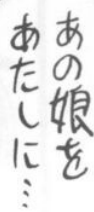 あの娘を
あたしに…